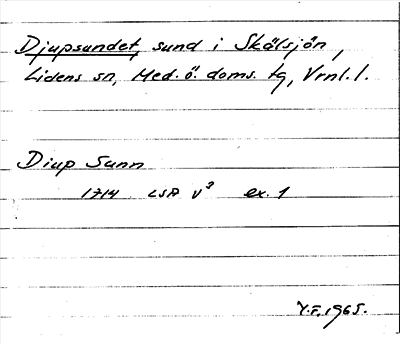 Djupsundet, sund i Skälsjön,
Lidens sn, Med. ö. doms. tg, Vrnl. l.
Diup Sunn
1714 LSA V³ ex. 1
Y.F. 1965.